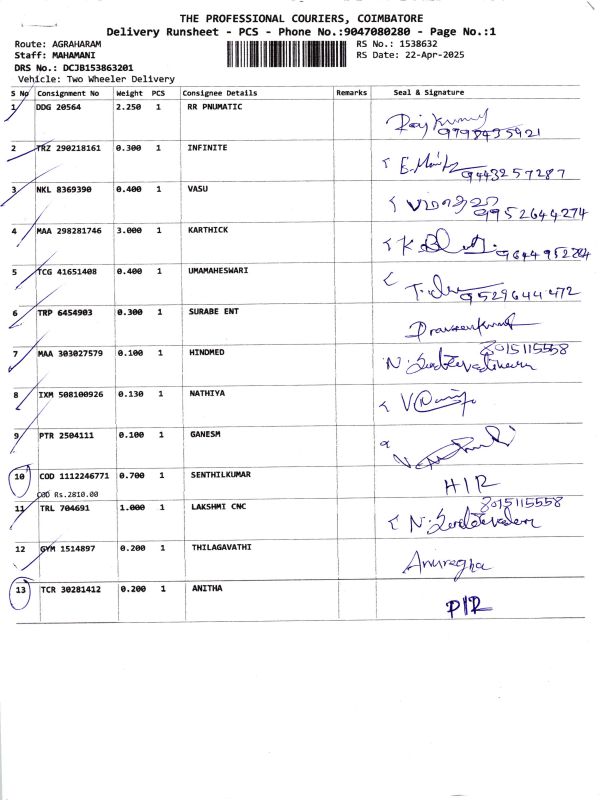 THE PROFESSIONAL COURIERS, COIMBATORE
Delivery Runsheet - PCS - Phone No.:9047080280 - Page No.:1
Route: AGRAHARAM RS No.: 1538632
Staff: MAHAMANI RS Date: 22-Apr-2025
DRS No.: DCJB153863201
Vehicle: Two Wheeler Delivery
S No Consignment No Weight PCS Consignee Details Remarks Seal & Signature
1 DDG 20564 2.250 1 RR PNUMATIC
2 TRZ 290218161 0.300 1 INFINITE 9443257287
3 NKL 8369390 0.400 1 VASU 9952644274
4 MAA 298281746 3.000 1 KARTHICK
5 TCG 41651408 0.400 1 UMAMAHESWARI 9529644472
6 TRP 6454903 0.300 1 SURABE ENT
7 MAA 303027579 0.100 1 HINDMED 8015115558
8 IXM 508100926 0.130 1 NATHIYA
9 PTR 2504111 0.100 1 GANESM
10 COD 1112246771 0.700 1 SENTHILKUMAR
COD Rs.2810.00
11 TRL 704691 1.000 1 LAKSHMI CNC 8015115558
12 GYM 1514897 0.200 1 THILAGAVATHI Anuregha
13 TCR 30281412 0.200 1 ANITHA P/R